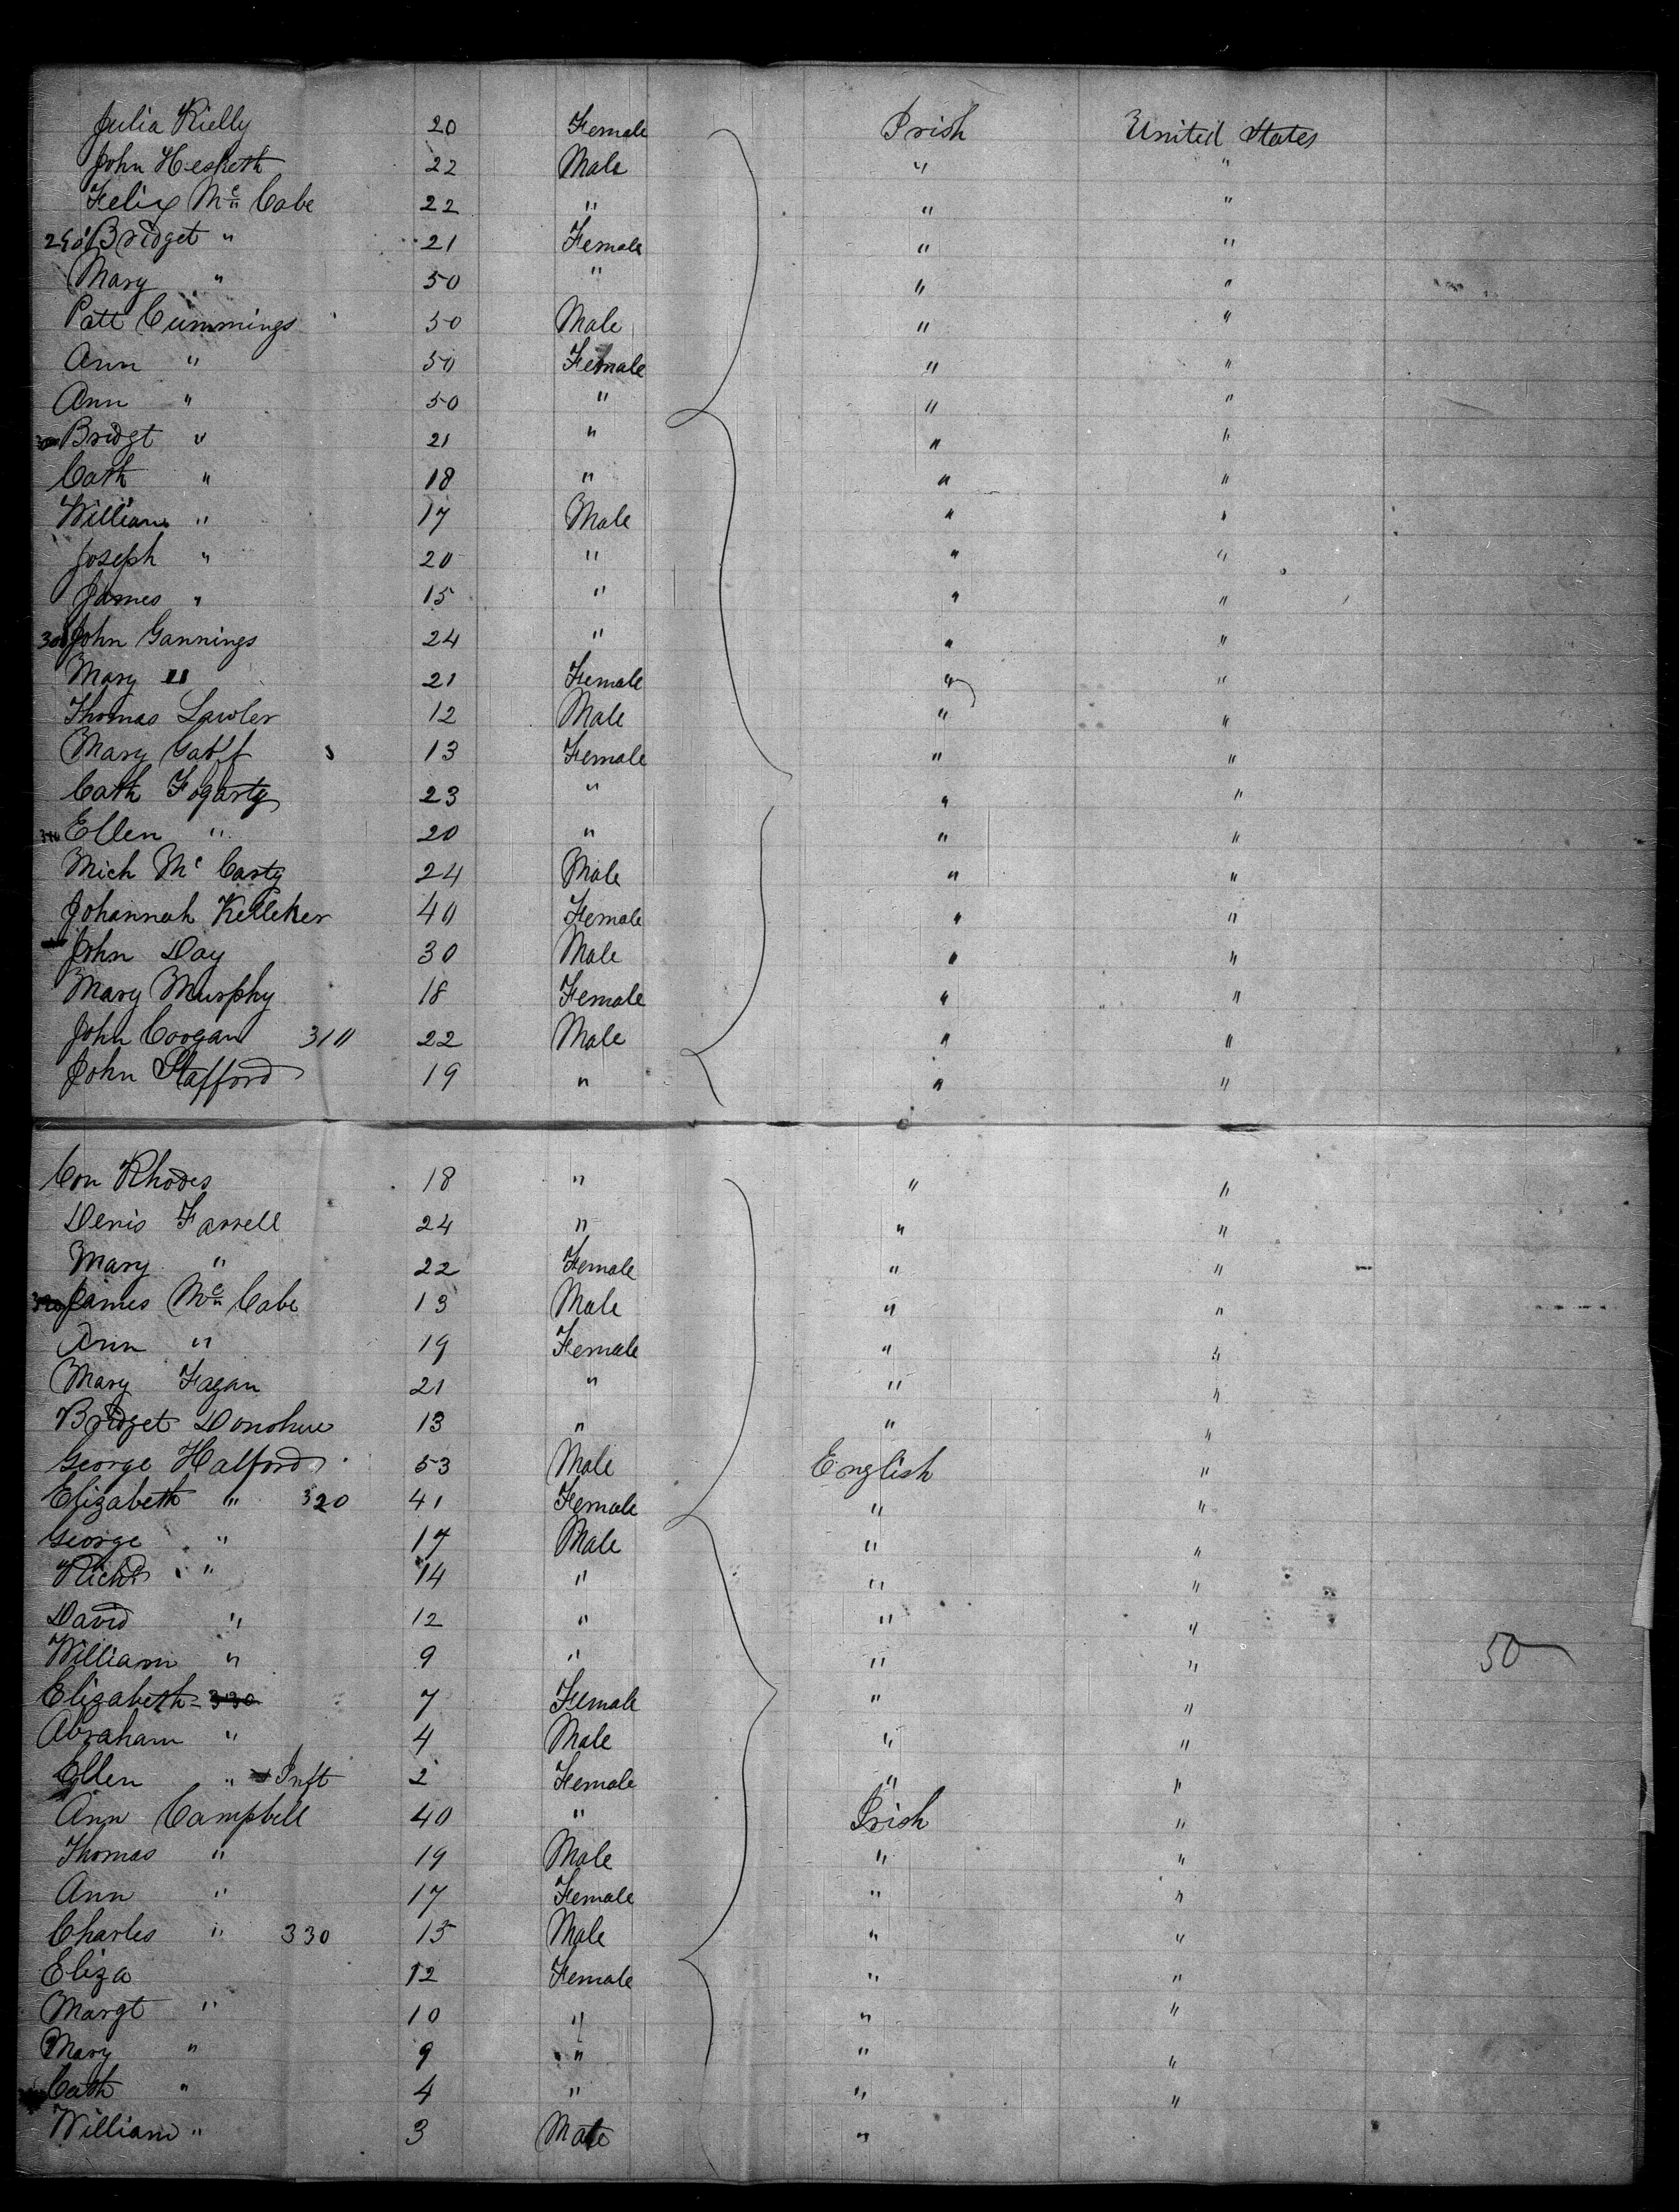 Julia Rielly 20 Female Irish United States
John Hesketh 22 Male " "
Felix Mc Cabe 22 " " "
290 Bridget " 21 Female " "
Mary " 50 " " "
Patt Cummings 50 Male " "
Ann " 50 Female " "
Ann " 50 " " "
Bridgt " 21 " " "
Cath " 18 " " "
William " 17 Male " "
Joseph " 20 " " "
James " 15 " " "
300 John Gannings 24 " " "
Mary " 21 Female " "
Thomas Lawler 12 Male " "
Mary 13 Female " "
Cath Fogarty 23 " " "
Ellen " 20 " " "
Mich Mc Carty 24 Male " "
Johannah Kelleher 40 Female " "
John Day 30 Male " "
Mary Murphy 18 Female " "
John Coogan 310 22 Male " "
John Stafford 19 " " "
Con Rhodes 18 " " "
Denis Farrell 24 " " "
Mary " 22 Female " "
James Mc Cabe 13 Male " "
Ann " 19 Female " "
Mary Fagan 21 " " "
Bridget Donohue 13 " " "
George Halford 53 Male English "
Elizabeth " 320 41 Female " "
George " 17 Male " "
Richd " 14 " " "
David " 12 " " "
William " 9 " " " 50
Elizabeth 330 7 Female " "
Abraham " 4 Male " "
Ellen " Inft 2 Female " "
Ann Campbell 40 " Irish "
Thomas " 19 Male " "
Ann " 17 Female " "
Charles " 330 15 Male " "
Eliza 12 Female " "
Margt " 10 " " "
Mary " 9 " " "
Cath " 4 " " "
William " 3 Male "